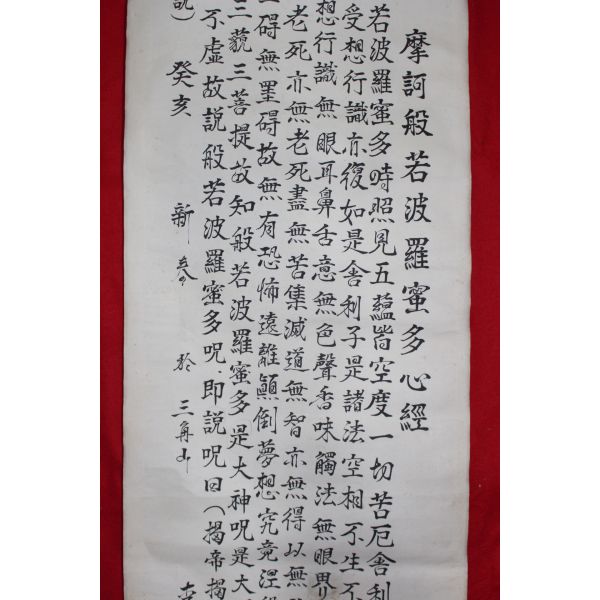 摩訶般若波羅蜜多心經
若波羅蜜多時照見五蘊皆空度一切苦厄舍利
受想行識亦復如是舍利子是諸法空相不生不
想行識無眼耳鼻舌意無色聲香味觸法無眼界
老死亦無老死盡無苦集滅道無智亦無得以無
碍無罣碍故無有恐怖遠離顚倒夢想究竟涅
三藐三菩提故知般若波羅蜜多是大神呪是大
不虛故說般若波羅蜜多呪、即說呪曰(揭帝揭
訶) 癸亥 新春 於 三角山